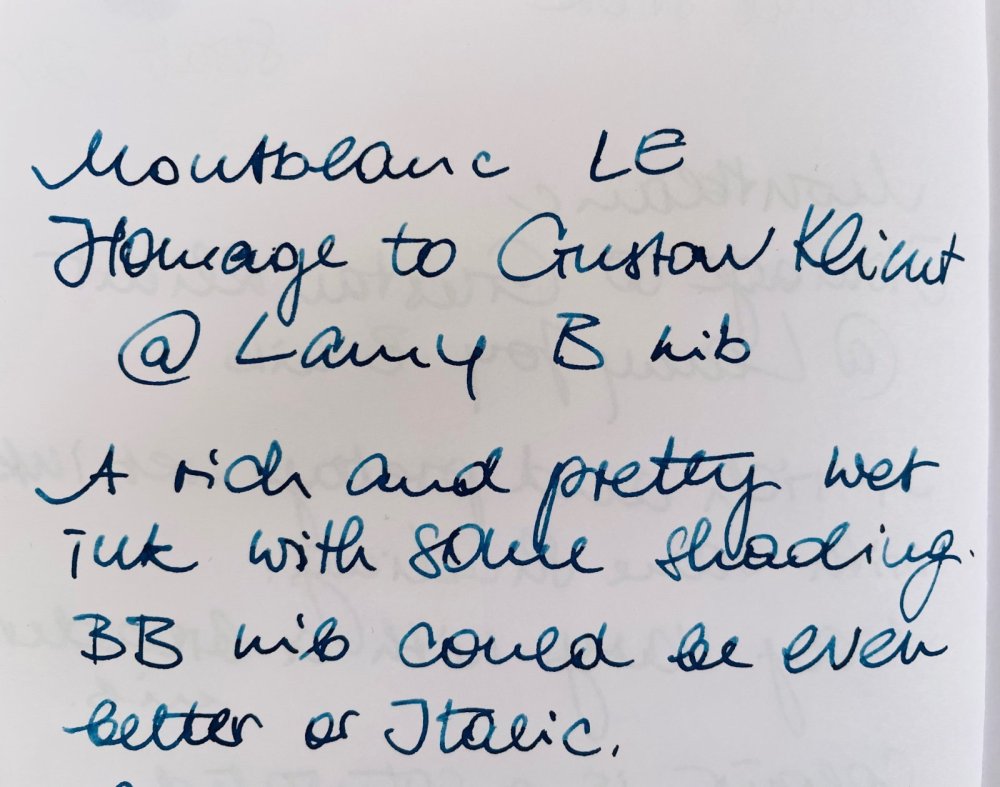 Montblanc LE
Homage to Gustav Klimt
@ Lamy B nib
A rich and pretty wet
ink with some shading.
BB nib could be even
better or Italic.